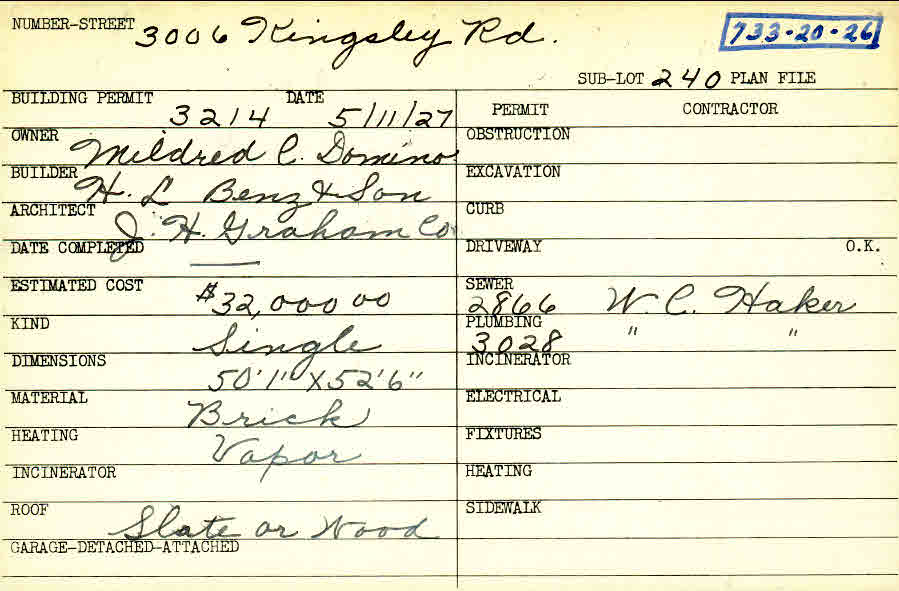 NUMBER-STREET 3006 Kingsley Rd.
733-20-26
SUB-LOT 240 PLAN FILE
BUILDING PERMIT 3214 DATE 5/11/27
PERMIT CONTRACTOR
OWNER Mildred C. Domino
OBSTRUCTION
BUILDER H. L Benz & Son
EXCAVATION
ARCHITECT J. H. Graham Co.
CURB
DATE COMPLETED —
DRIVEWAY O.K.
ESTIMATED COST $32,000 00
SEWER 2866 W. C. Haker
KIND Single
PLUMBING 3028 " "
DIMENSIONS 50'1" X 52'6"
INCINERATOR
MATERIAL Brick
ELECTRICAL
HEATING Vapor
FIXTURES
INCINERATOR
HEATING
ROOF Slate or Wood
SIDEWALK
GARAGE-DETACHED-ATTACHED